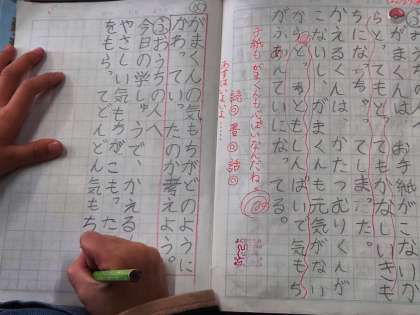 がまくんは、お手紙がこないか
らと、ってもかなしいきも
ちになっちゃってしまった。
かえるくんは、かたつむりくんが
こないし、がまくんも元気がない
からと、ってもしんぱいで気もち
がふあんていになってる。
お手紙もがまくんも心ぱいなんだね。
読○書○話○
がまくんの気もちがどのように
かわっていったのか考えよう。
おうちの人へ
今日の学しゅうで、かえる
やさしい気もちがこもった
をもらってどんどん気もち